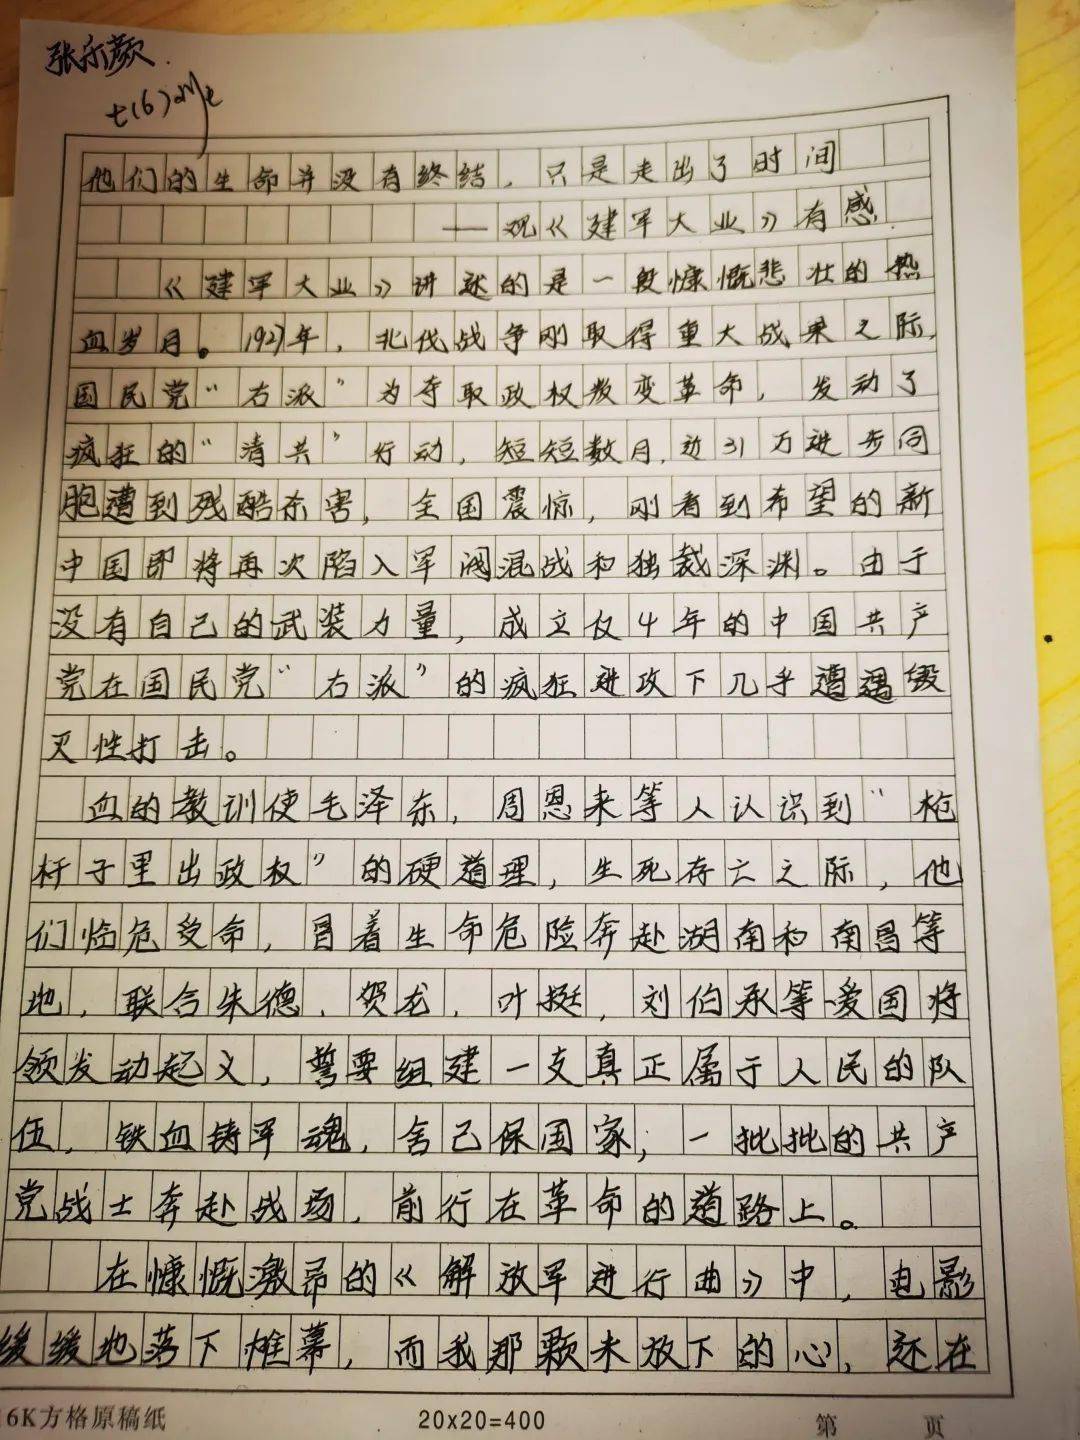 张永颜
七(6)
他们的生命并没有终结，只是走出了时间
——观《建军大业》有感
《建军大业》讲述的是一段慷慨悲壮的热
血岁月。1927年，北伐战争刚取得重大战果之际，
国民党“右派”为夺取政权叛变革命，发动了
疯狂的“清共”行动，短短数月，近31万进步同
胞遭到残酷杀害，全国震惊，刚看到希望的新
中国即将再次陷入军阀混战和独裁深渊。由于
没有自己的武装力量，成立仅4年的中国共产
党在国民党“右派”的疯狂进攻下几乎遭遇毁
灭性打击。
血的教训使毛泽东，周恩来等人认识到“枪
杆子里出政权”的硬道理，生死存亡之际，他
们临危受命，冒着生命危险奔赴湖南和南昌等
地，联合朱德，贺龙，叶挺，刘伯承等爱国将
领发动起义，誓要组建一支真正属于人民的队
伍，铁血铸军魂，舍己保国家，一批批的共产
党战士奔赴战场，前行在革命的道路上。
在慷慨激昂的《解放军进行曲》中，电影
缓缓地落下帷幕，而我那颗未放下的心，还在
16K方格原稿纸 20x20=400 第 页